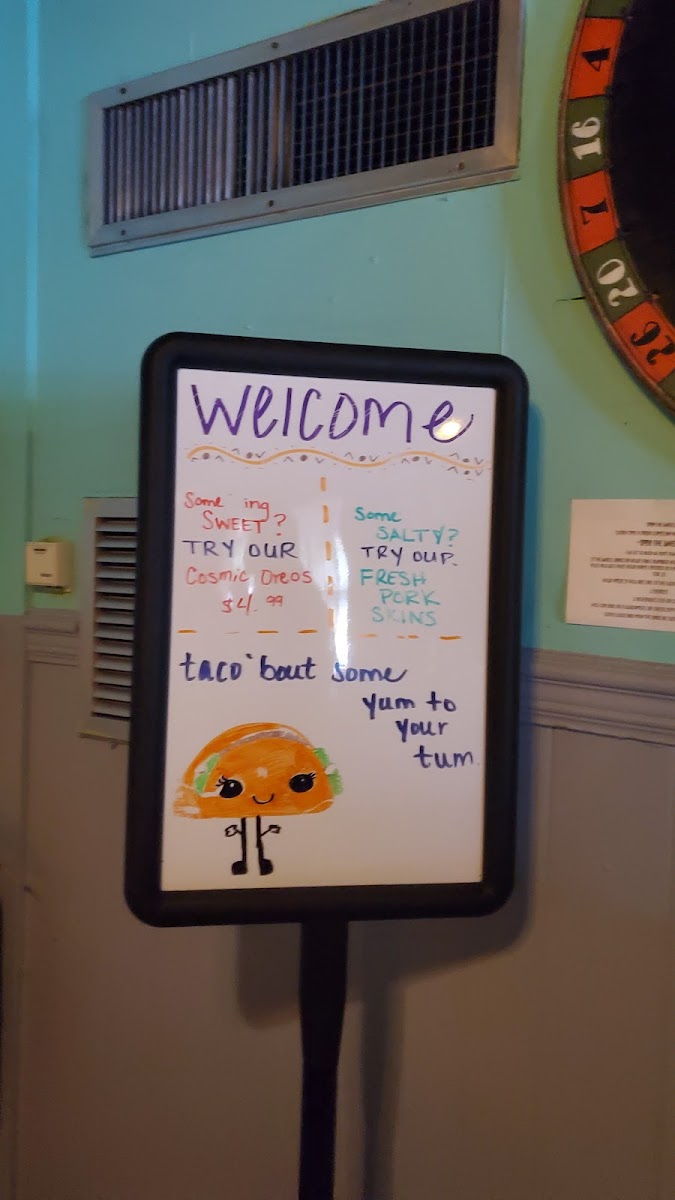 welcome
Some ing
SWEET?
TRY OUR
Cosmic Oreos
$4.99
Some
SALTY?
TRY OUR
FRESH
PORK
SKINS
taco 'bout some
yum to
your
tum.
4
16
7
20
26